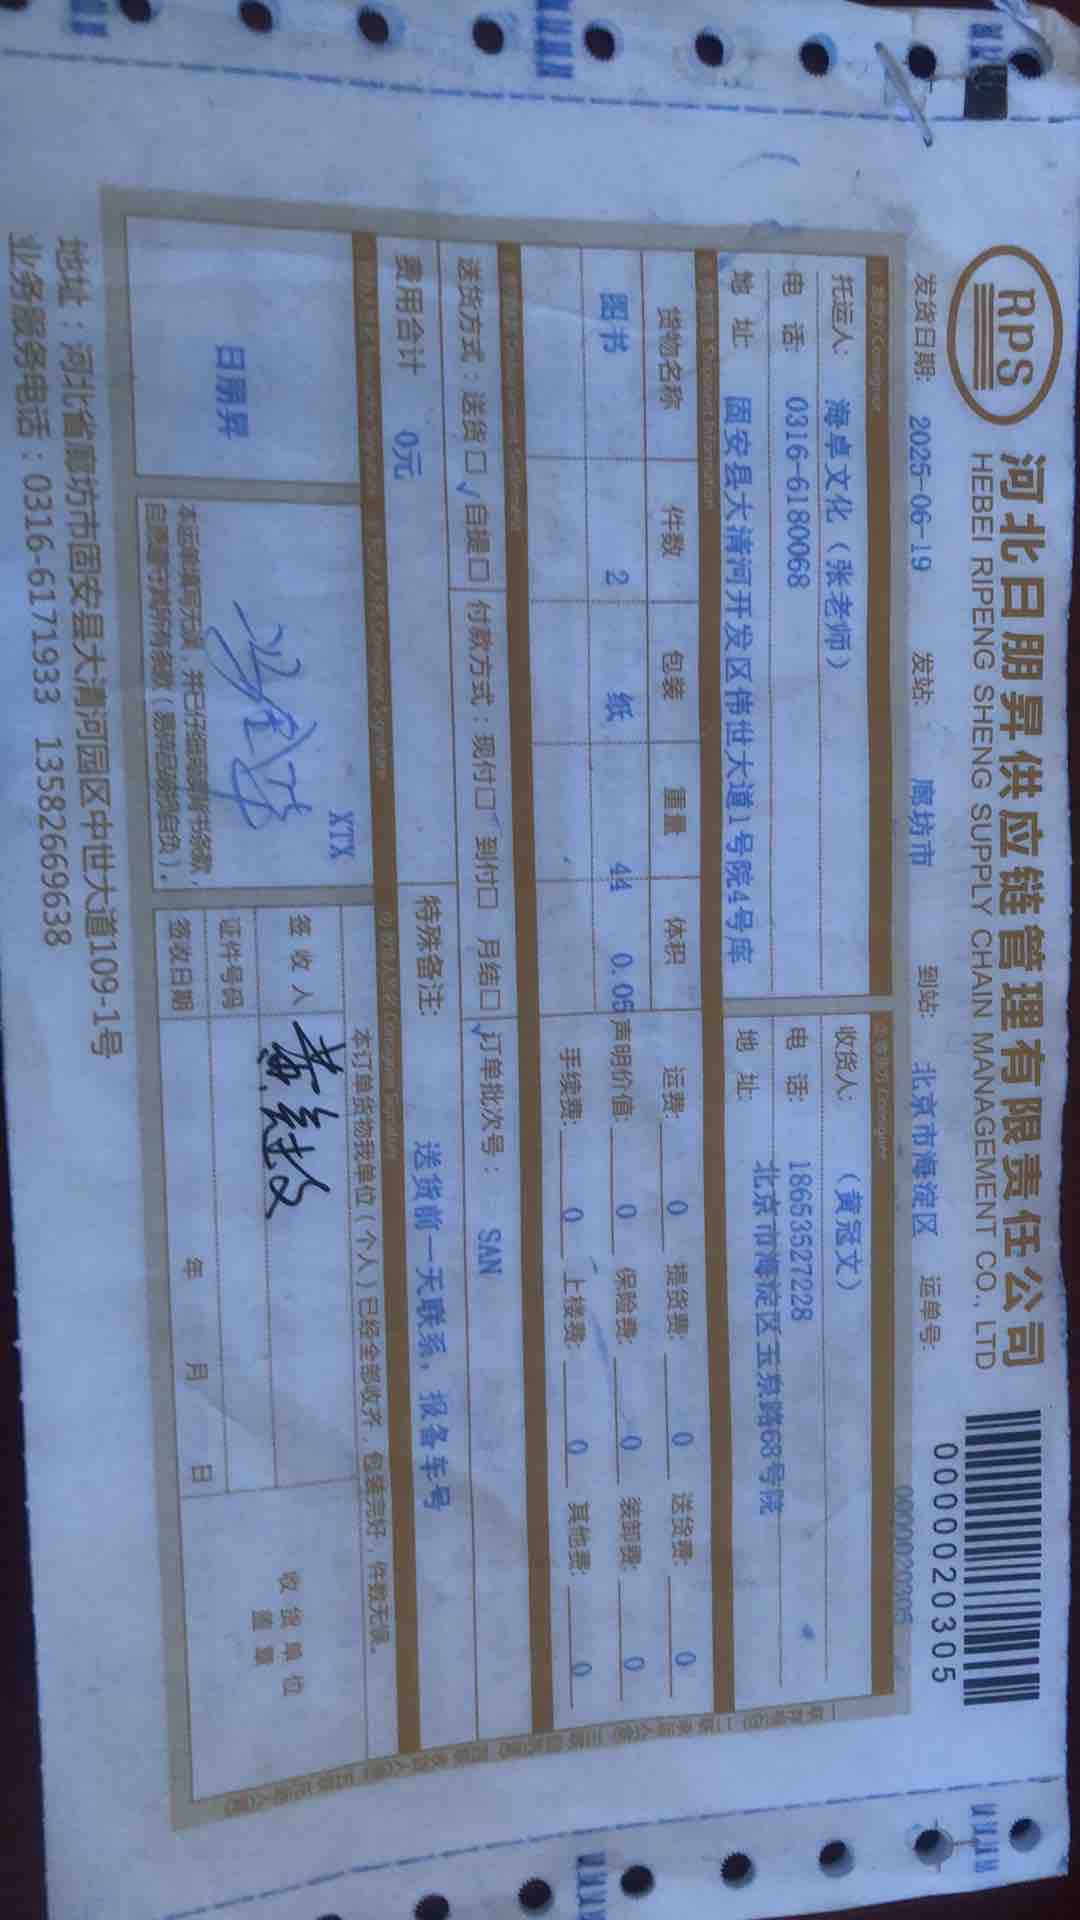 RPS
河北日朋昇供应链管理有限责任公司
HEBEI RIPENG SHENG SUPPLY CHAIN MANAGEMENT CO., LTD
0000020305
发货日期: 2025-06-19 发站: 廊坊市 到站: 北京市海淀区 运单号: 0000020305
托运人: 海卓文化（张老师）
电 话: 0316-6180068
地 址: 固安县大清河开发区伟世大道1号院4号库
收货人: （黄冠文）
电 话: 18653527228
地 址: 北京市海淀区玉泉路68号院
货物名称 件数 包装 重量 体积
图书 2 纸 44 0.05
运费: 0 提货费: 0 送货费: 0
声明价值: 0 保险费: 0 装卸费: 0
手续费: 0 上楼费: 0 其他费: 0
送货方式：送货□√自提□ 付款方式：现付□ 到付□ 月结□√ 订单批次号： SAN
费用合计 0元
特殊备注: 送货前一天联系，报备车号
日朋昇
XTX
本运单填写无误，并已仔细阅读背书条款，
自愿遵守其所有条款（易碎品破损自负）。
本订单货物我单位（个人）已经全部收齐，包装完好，件数无误。
签 收 人
证件号码
签收日期 年 月 日
收 货 单 位
盖 章
地址：河北省廊坊市固安县大清河园区中世大道109-1号
业务服务电话：0316-6171933 13582669638